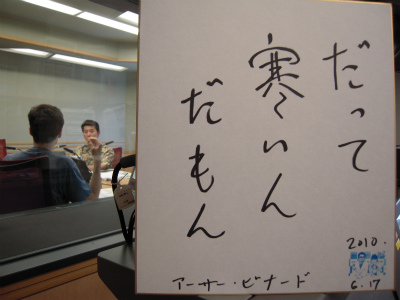 だって
寒いん
だもん
2010.
6.17
アーサー・ビナード